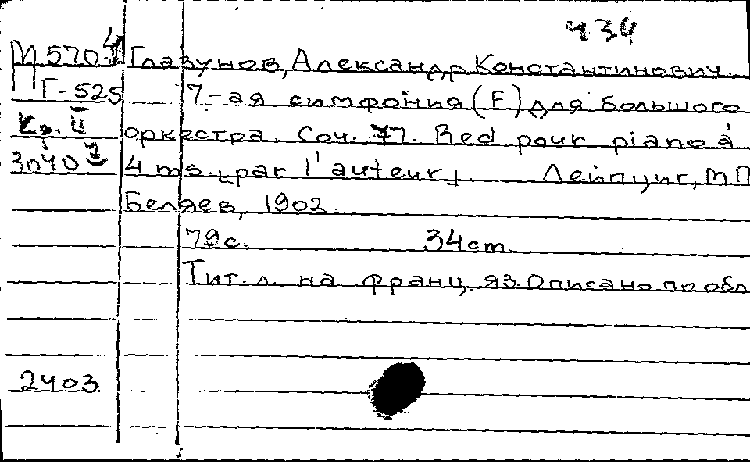 434
М.570 4 Глазунов, Александр Константинович
П Г-525 7-ая симфония (F) для большого
Кр. II оркестра. Соч. 77. Red pour piano à
4 ms. [par l'auteur]. Лейпциг, М.П
Беляев, 1902.
79с. 34cm.
Тит. л. на франц. яз. Описано по обл
2403